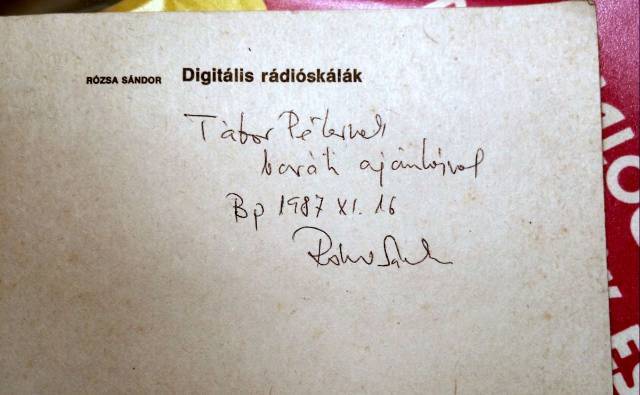 RÓZSA SÁNDOR Digitális rádióskálák
Tábor Péternek
baráti ajánlással
Bp 1987 XI. 16
Rózsa Sándor